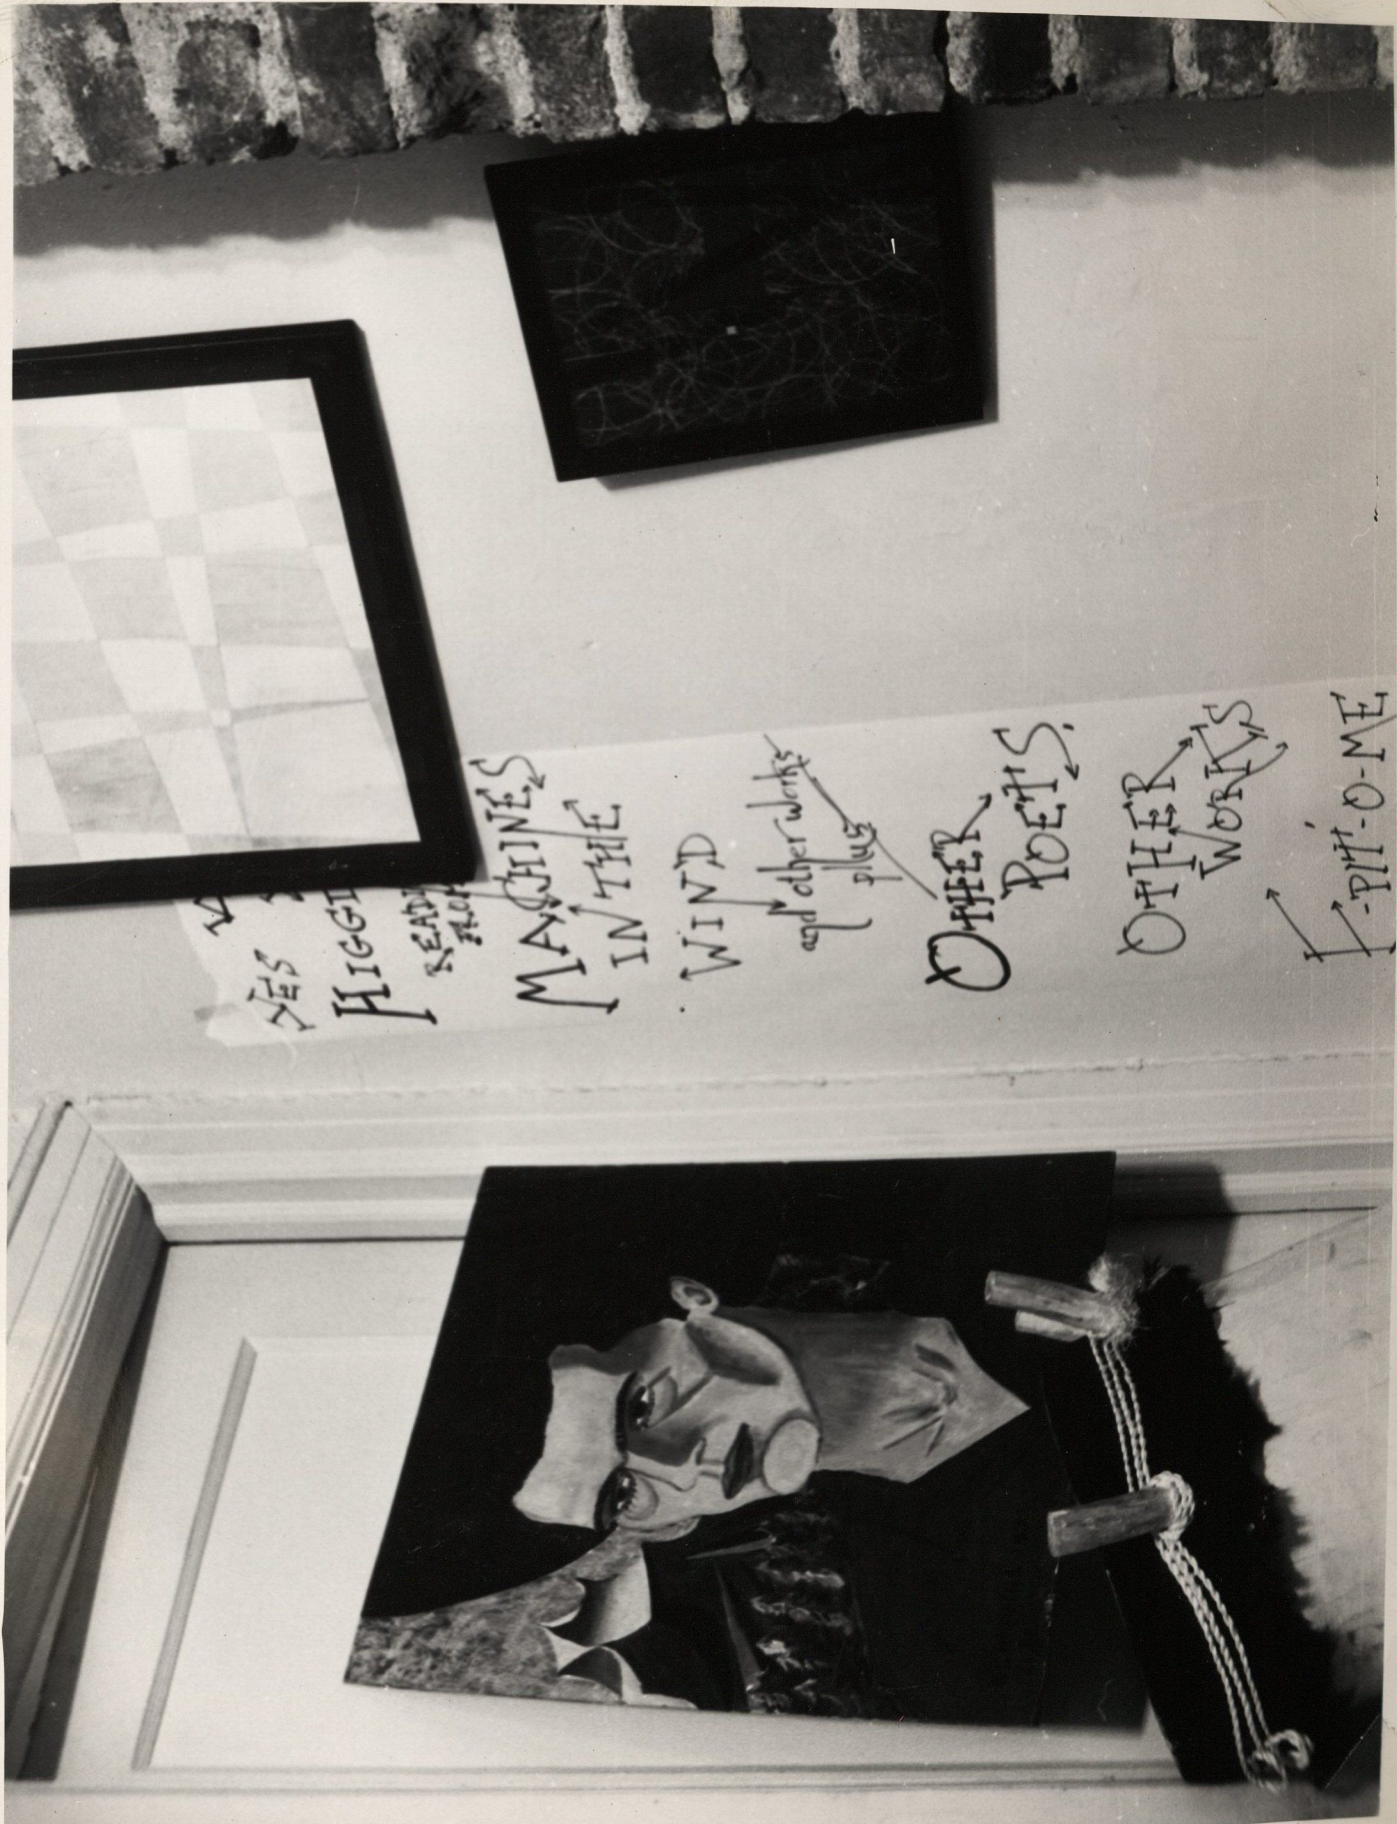 YES
HIGGI
READ
FROM
MACHINES
IN THE
WIND
and other works
plus
OTHER
POETS.
OTHER
WORKS
-PITT-O-ME